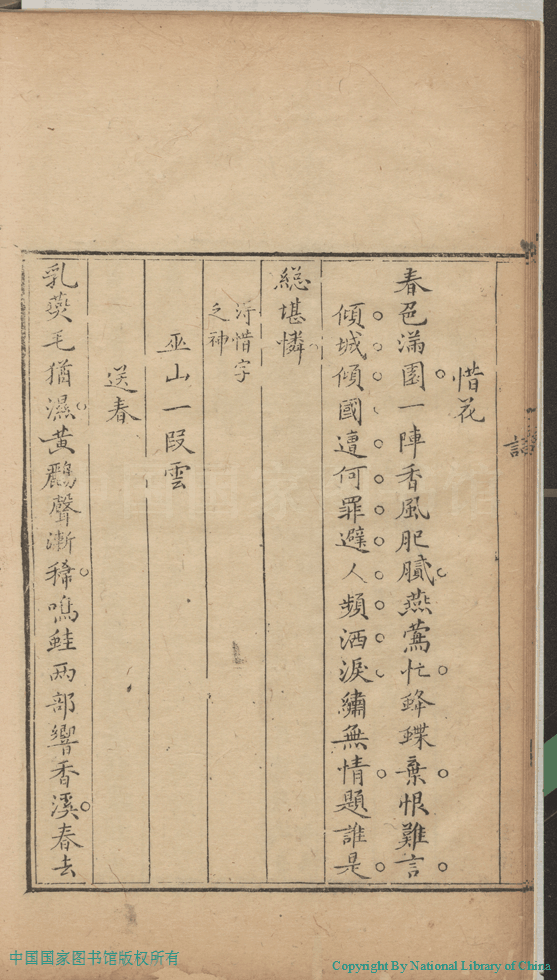 惜花
春色滿園一陣香風肥膩燕鶯忙蜂蝶棄恨難言
傾城傾國遭何罪避人頻洒淚繡無情題誰是
総堪憐
得惜字
之神
巫山一段雲
送春
乳燕毛猶濕黄鸝聲漸稀鳴蛙两部響香溪春去
中国国家图书馆版权所有
Copyright By National Library of China